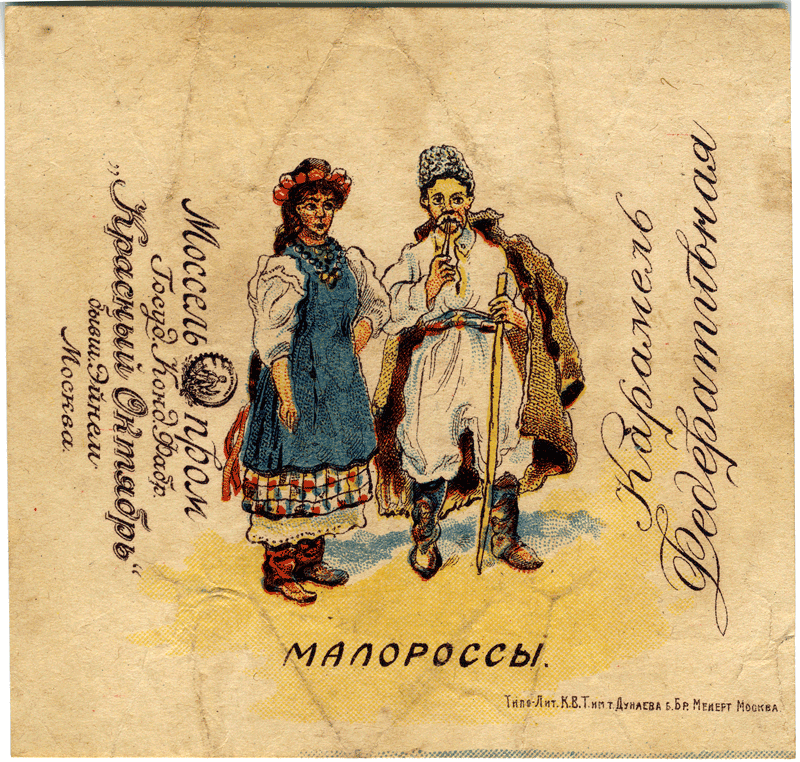 Моссель пром
Госуд. Конд. Фабр.
„Красный Октябрь“
бывш. Эйнем
Москва.
Карамель
Федеративная
МАЛОРОССЫ.
Типо-Лит. К.В.Т. им т. Дунаева б. Бр. Менерт Москва.